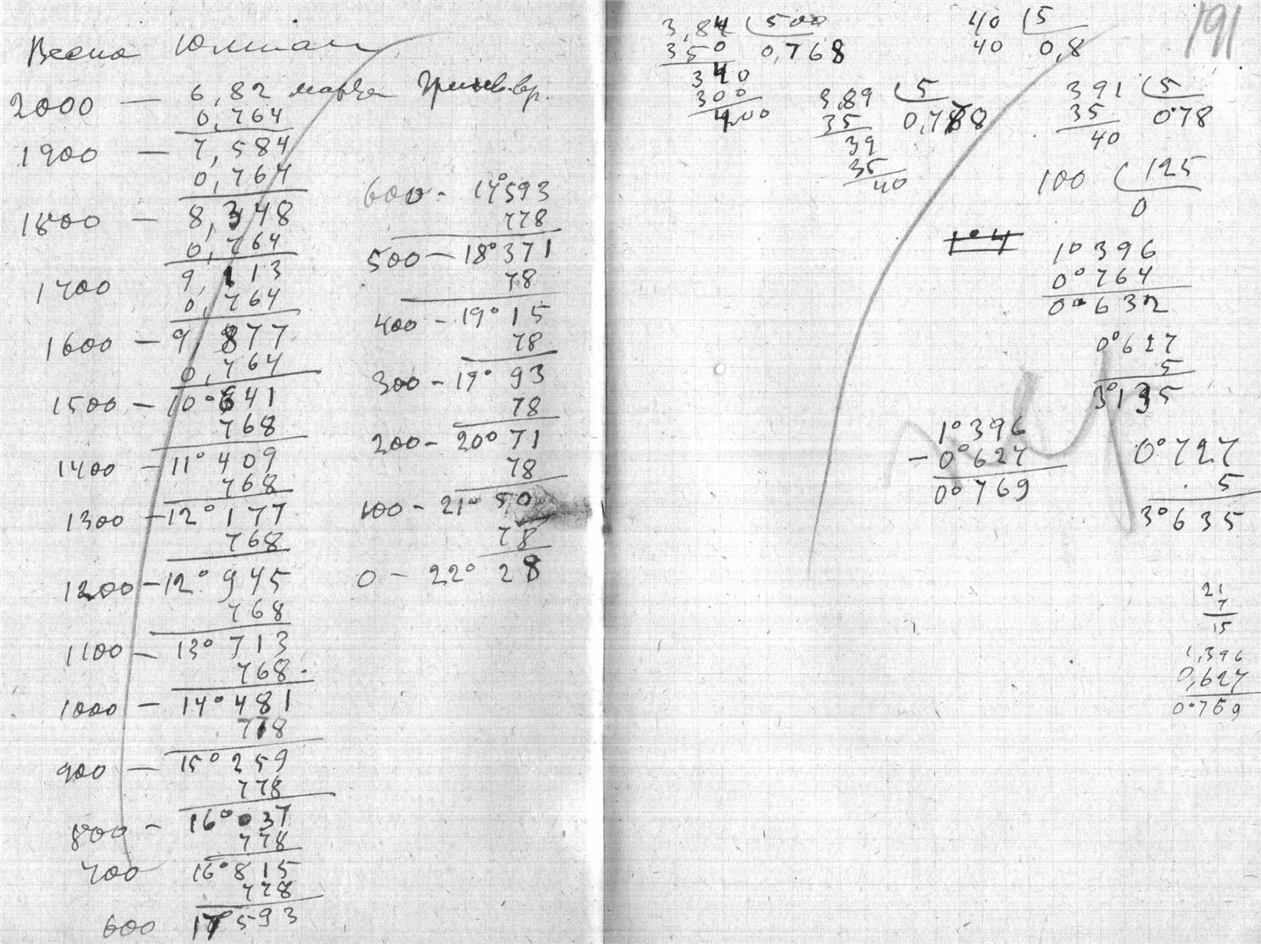 Весна Юлиан
2000 — 6,82 марта Гринв. вр.
0,764
1900 — 7,584
0,764
1800 — 8,348
0,764
1700 — 9,113
0,764
1600 — 9 877
0,764
1500 — 10°641
768
1400 — 11°409
768
1300 — 12°177
768
1200 — 12°945
768
1100 — 13°713
768.
1000 — 14°481
778
900 — 15°259
778
800 — 16°037
778
700 16°815
778
600 17°593
600 - 17°593
778
500 — 18°371
78
400 — 19°15
78
300 — 19°93
78
200 - 20°71
78
100 - 21°50
78
0 — 22°28
191
3,84 500
350 0,768
340
300
400
40 5
40 0,8
3,89 5
35 0,778
39
35
40
391 5
35 078
40
100 125
0
1°4
1°396
0°764
0°632
0°627
5
3°135
1°396
- 0°627
0°769
0°727
5
3°635
21
7
15
1,396
0,627
0°769